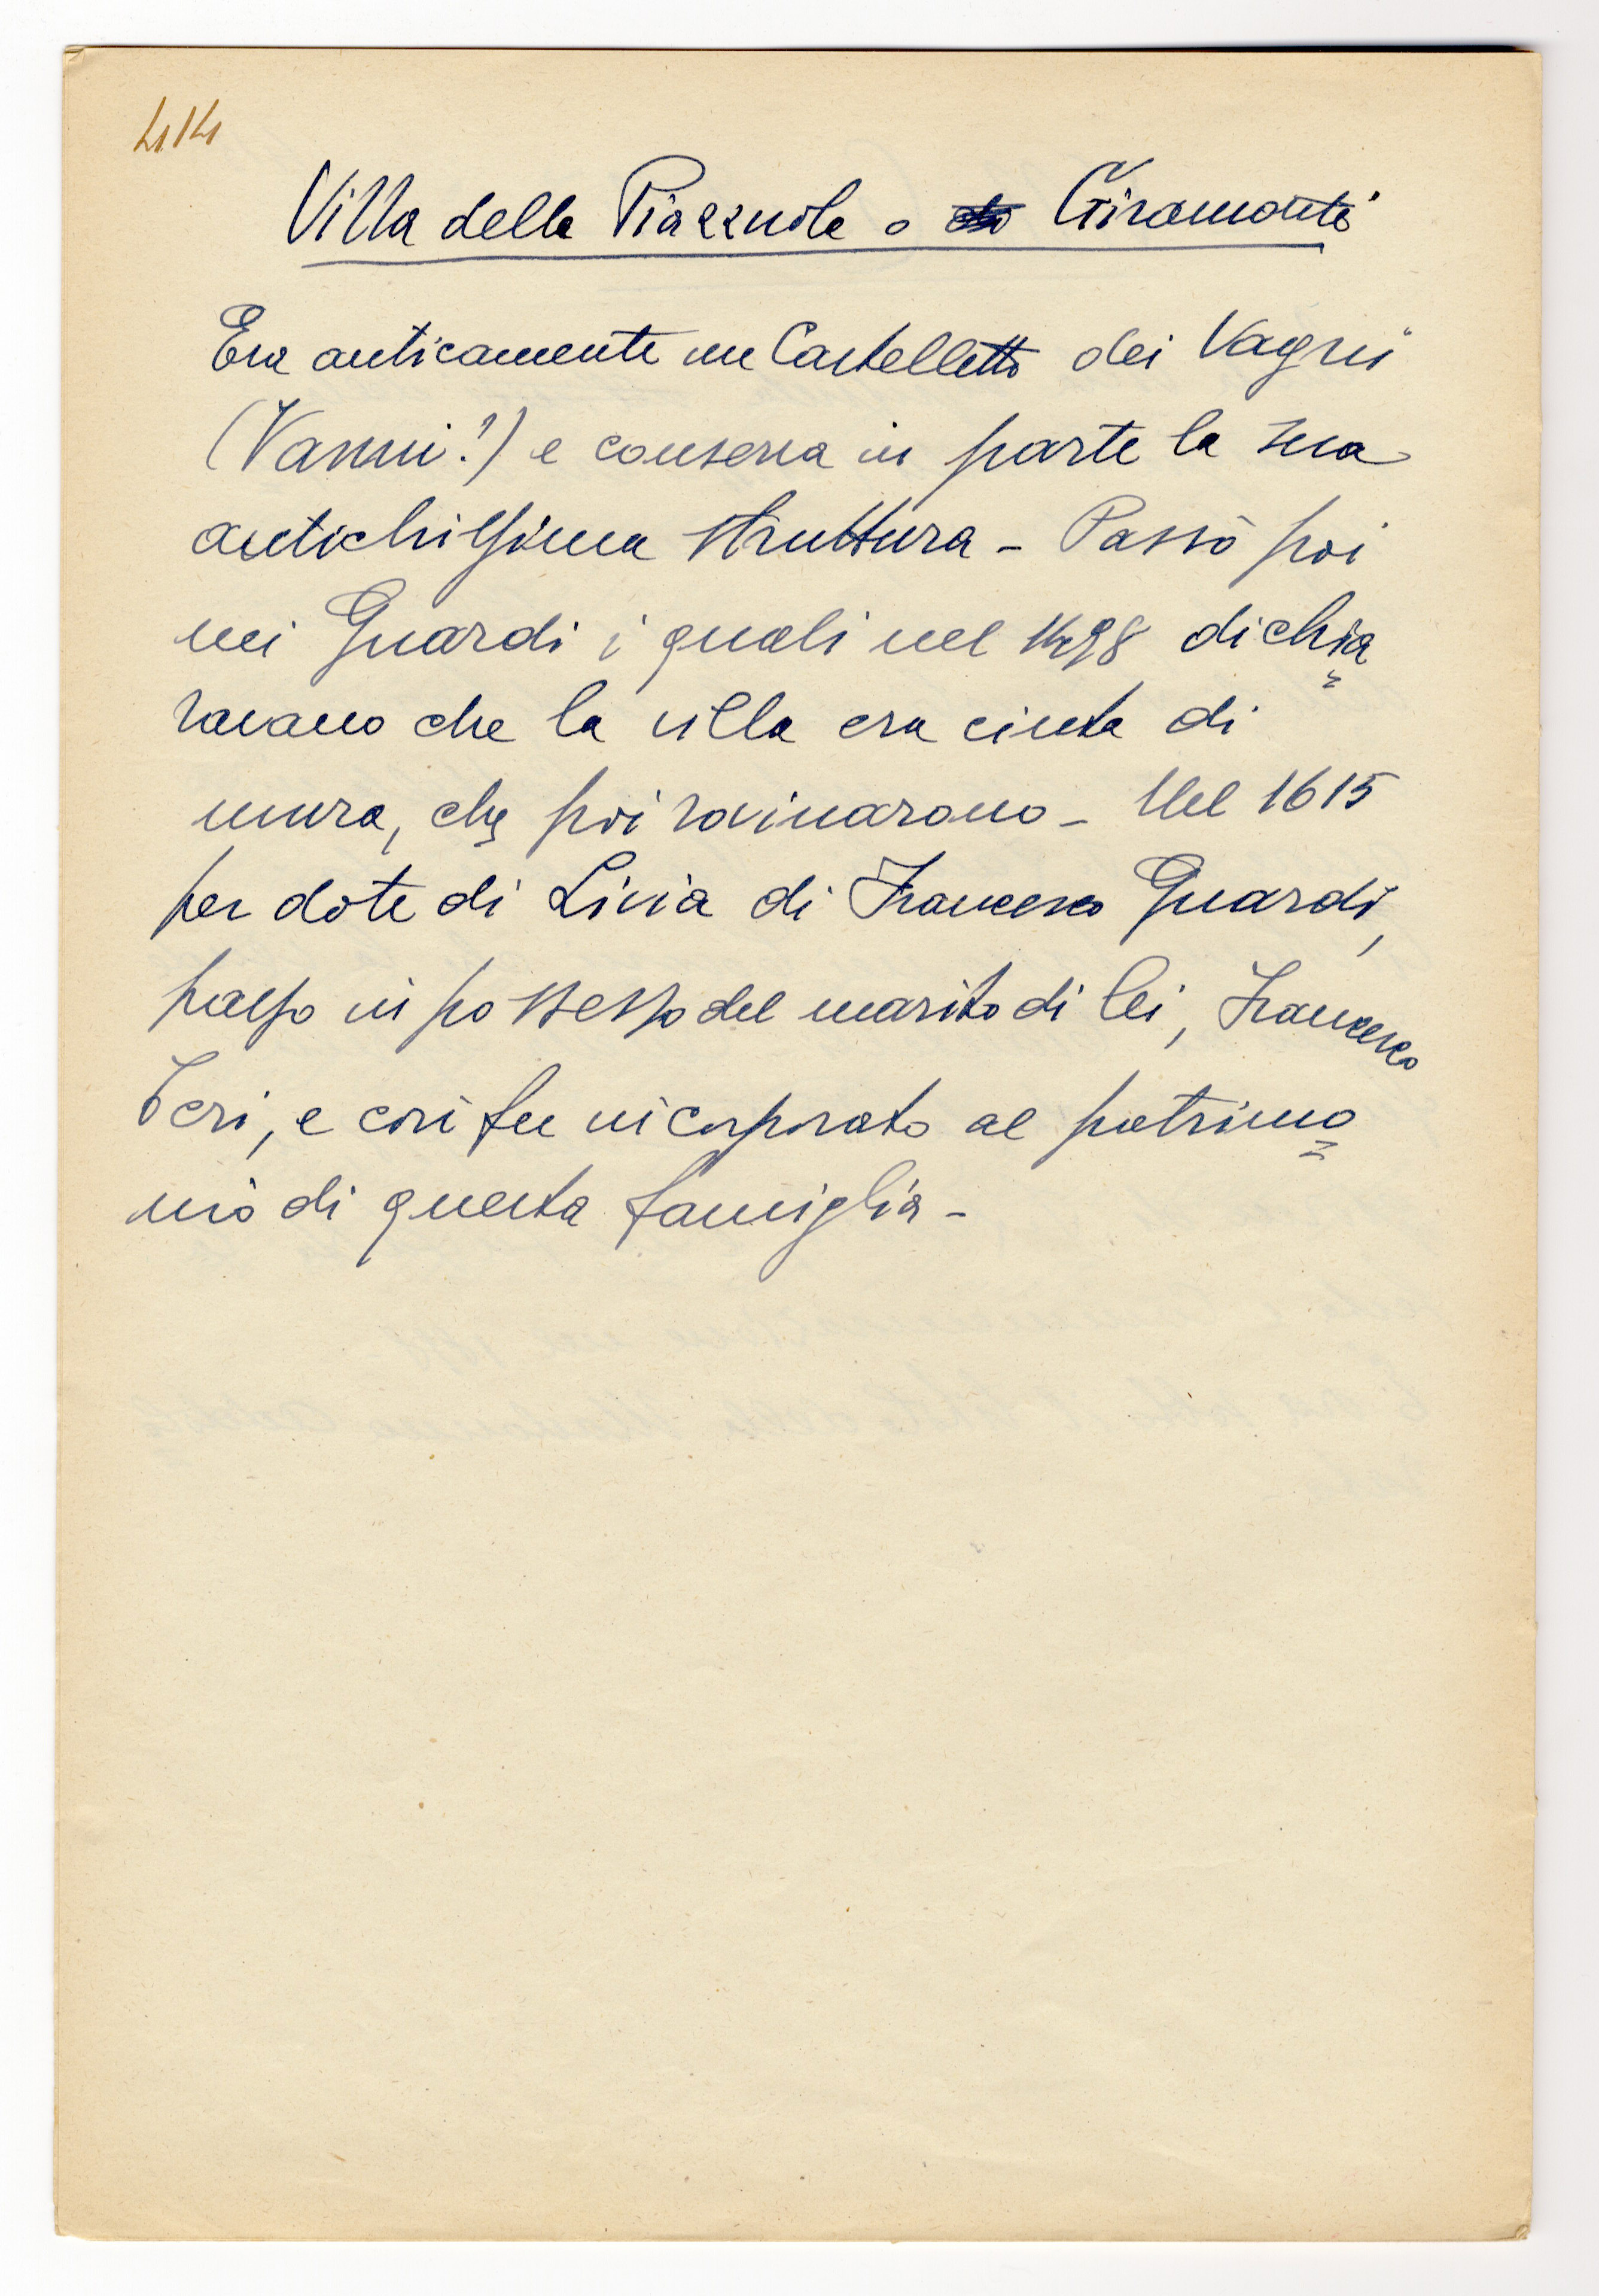 414
Villa delle Piazzuole o Giramonte
Era anticamente un Castelletto dei Vagni
(Vanni?) e conserva in parte la sua
antichissima struttura - Passò poi
nei Guardi i quali nel 1498 dichia=
ravano che la villa era cinta di
mura, che poi rovinarono - Nel 1615
per dote di Livia di Francesco Guardi,
passo in possesso del marito di lei, Francesco
Teri, e così fu incorporato al patrimo=
nio di questa famiglia -